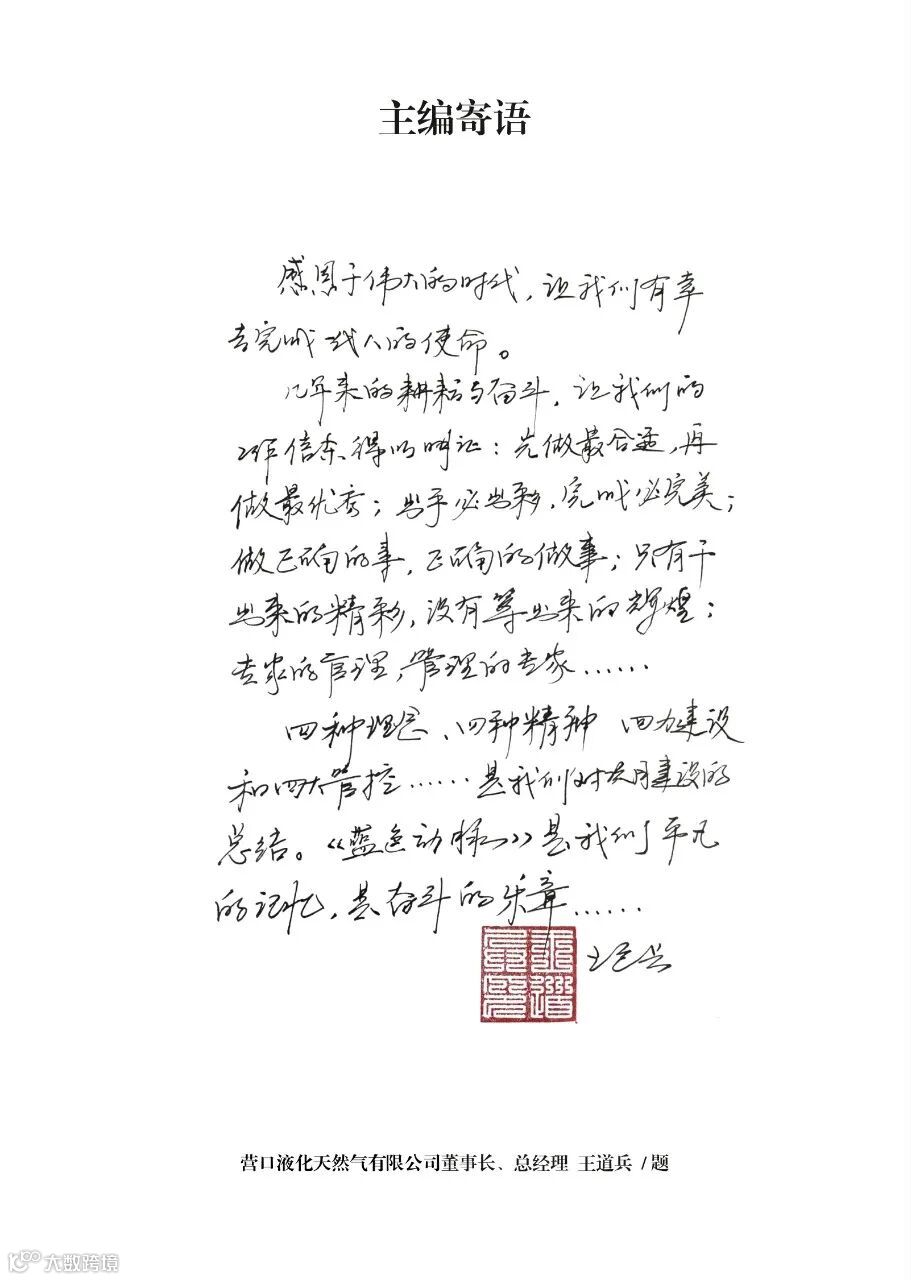 主编寄语
感恩于伟大的时代，让我们有幸
去完成一线人的使命。
几年来的耕耘与奋斗，让我们的
工作信条得以明证：先做最合适，再
做最优秀；出手必出彩，完成必完美；
做正确的事，正确的做事；只有干
出来的精彩，没有等出来的辉煌；
专家的管理，管理的专家……
四种理念、四种精神 四力建设
和四大管控……是我们对共同建设的
总结。《蓝色动脉》是我们平凡
的记忆，是奋斗的乐章……
王道兵
营口液化天然气有限公司董事长、总经理 王道兵 / 题
大数跨境